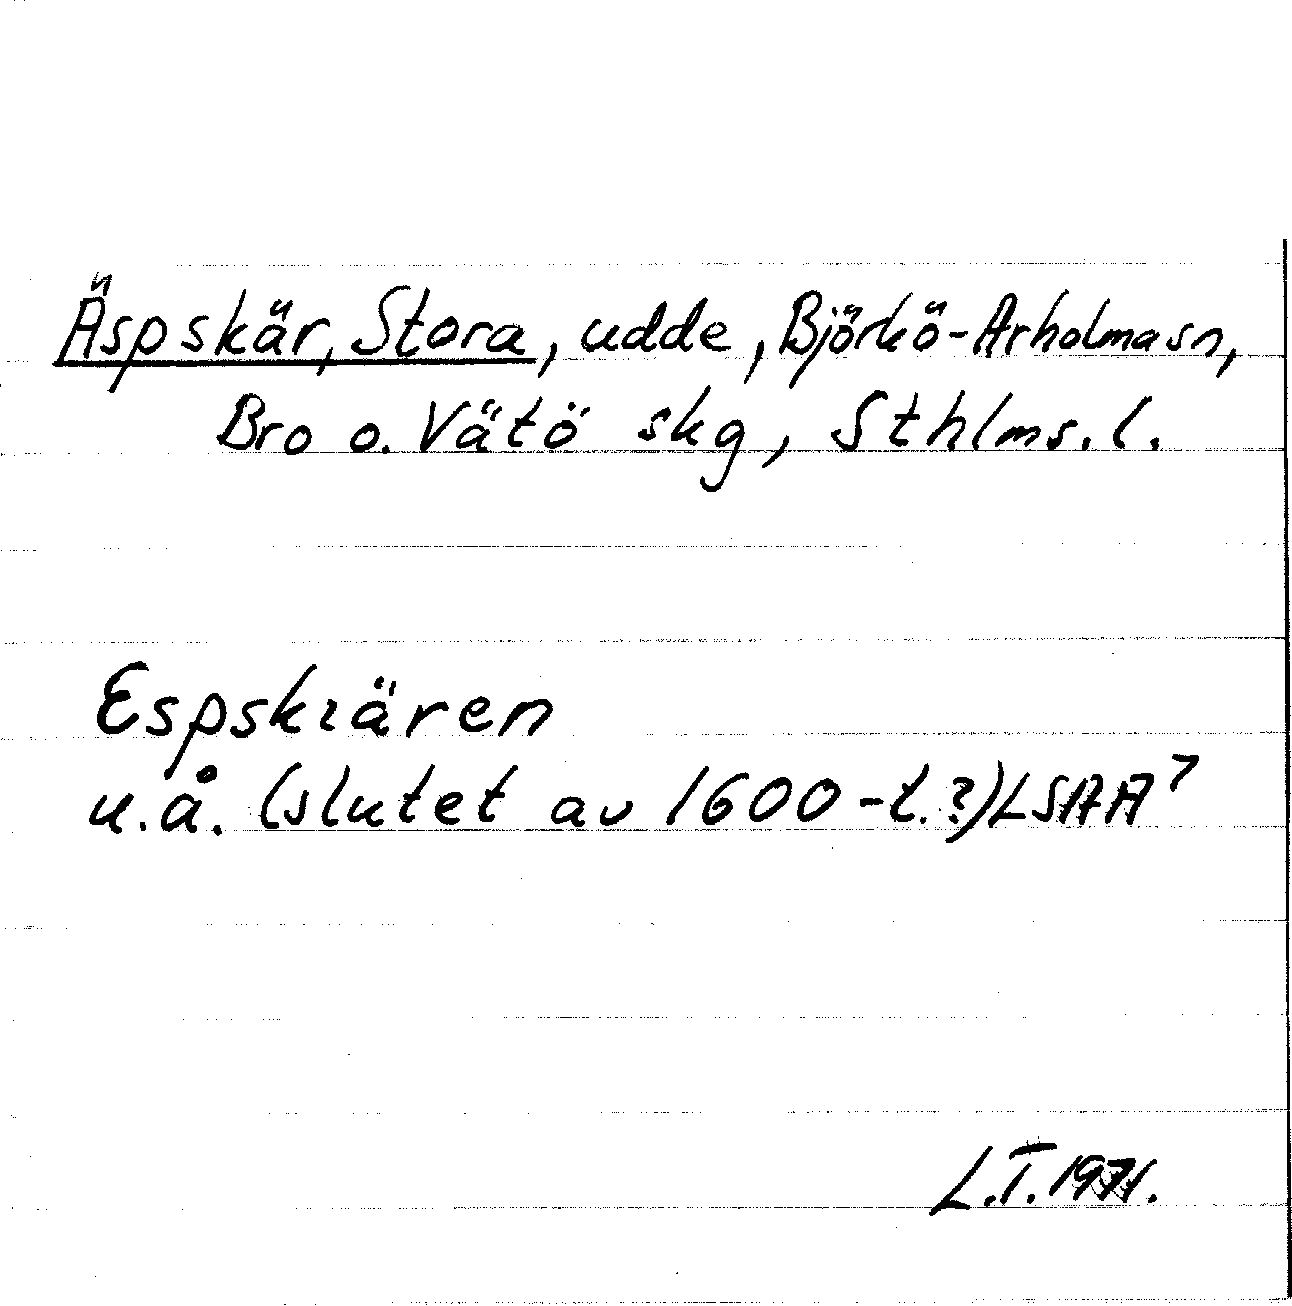 Äspskär, Stora, udde, Björkö-Arholmasn,
Bro o. Vätö skg, Sthlms. l.
Espskiären
u.å. (slutet av 1600-t.?) LSAA7
L.T. 1971.